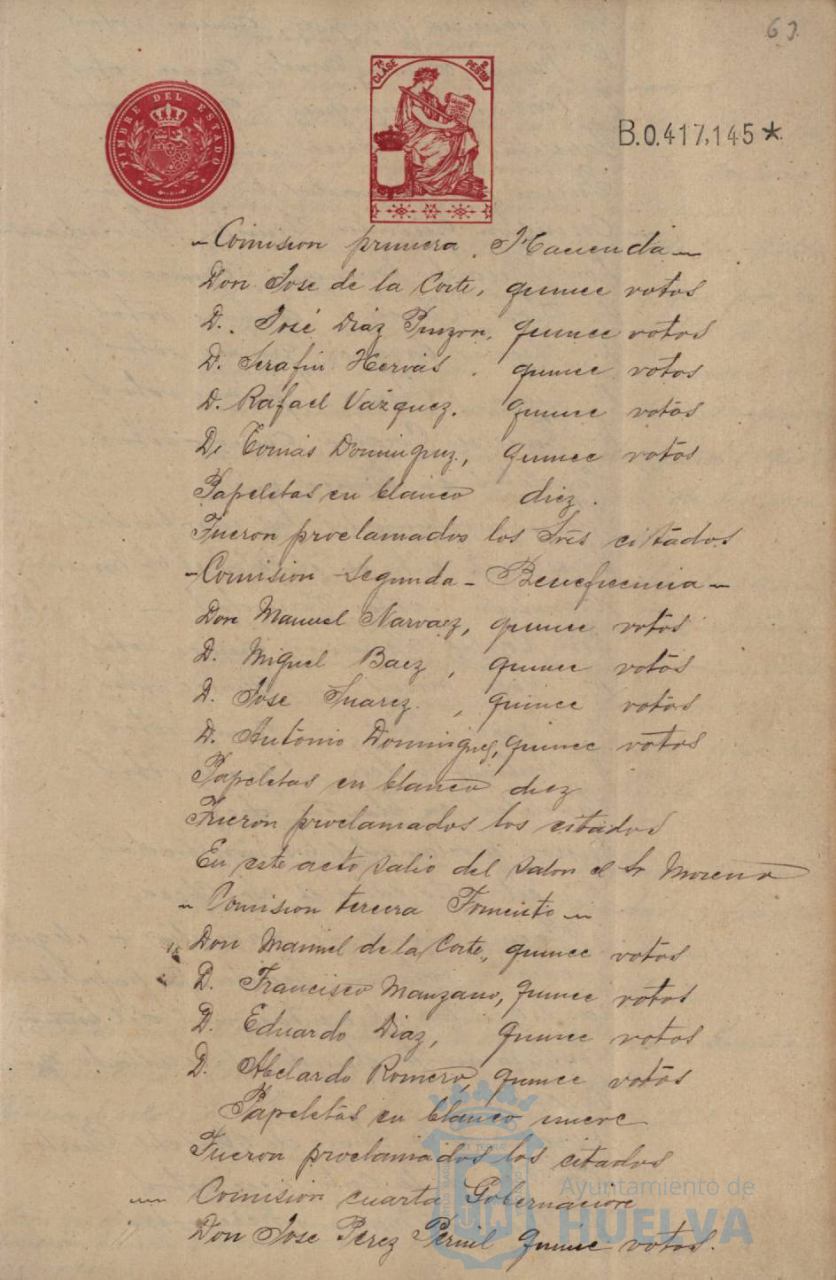 63
TIMBRE DEL ESTADO
7ª CLASE
2 PESTAS
B.0.417,145*
- Comision primera. Hacienda -
Don Jose de la Corte, quince votos
D. José Diaz Pinzon, quince votos
D. Serafin Hervás. quince votos
D. Rafael Vázquez. quince votos
D. Tomás Dominguez, quince votos
Papeletas en blanco diez.
Fueron proclamados los Sres citados
- Comision Segunda - Beneficencia -
Don Manuel Narvaez, quince votos
D. Miguel Baez, quince votos
D. Jose Suarez, quince votos
D. Antonio Dominguez, quince votos
Papeletas en blanco diez
Fueron proclamados los citados
En este acto salio del salon el Sr Moreno
- Comision tercera Fomento -
Don Manuel de la Corte, quince votos
D. Francisco Manzano, quince votos
D. Eduardo Diaz, quince votos
D. Abelardo Romero, quince votos
Papeletas en blanco nueve
Fueron proclamados los citados
- Comision cuarta Gobernacion
Don Jose Perez Pernil quince votos.
Ayuntamiento de
HUELVA